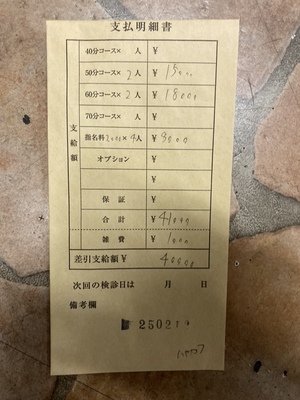 支払明細書
40分コース× 人 ¥
50分コース× 2人 ¥ 15000
60分コース× 2人 ¥ 18000
70分コース× 人 ¥
指名料2000×4人 ¥ 8000
オプション ¥
¥
支給額
保証 ¥
合計 ¥ 41000
雑費 ¥ 1000
差引支給額 ¥ 40000
次回の検診日は 月 日
備考欄
250219